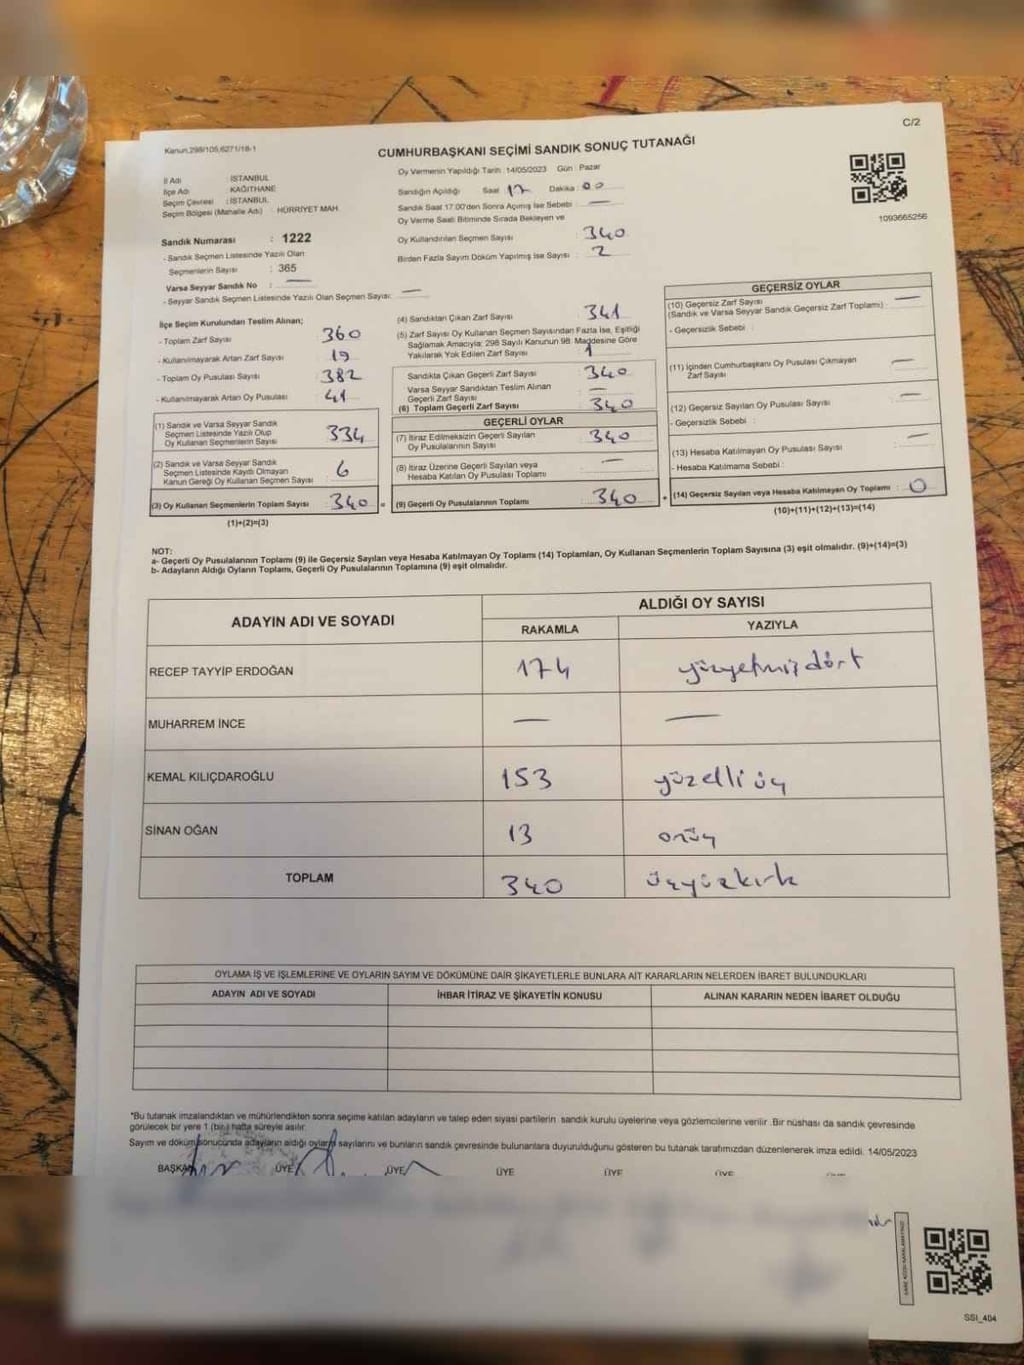 Kanun,298/105,6271/18-1
C/2
CUMHURBAŞKANI SEÇİMİ SANDIK SONUÇ TUTANAĞI
İl Adı : İSTANBUL
İlçe Adı : KAĞITHANE
Seçim Çevresi : İSTANBUL
Seçim Bölgesi (Mahalle Adı) : HÜRRİYET MAH.
Oy Vermenin Yapıldığı Tarih : 14/05/2023 Gün : Pazar
Sandığın Açıldığı Saat 17 Dakika : 00
Sandık Saat 17:00'den Sonra Açılmış İse Sebebi : —
Oy Verme Saati Bitiminde Sırada Bekleyen ve
Oy Kullandırılan Seçmen Sayısı : 340
Birden Fazla Sayım Döküm Yapılmış İse Sayısı : 2
1093665256
Sandık Numarası : 1222
- Sandık Seçmen Listesinde Yazılı Olan
Seçmenlerin Sayısı : 365
Varsa Seyyar Sandık No : —
- Seyyar Sandık Seçmen Listesinde Yazılı Olan Seçmen Sayısı: —
İlçe Seçim Kurulundan Teslim Alınan;
- Toplam Zarf Sayısı : 360
- Kullanılmayarak Artan Zarf Sayısı : 19
- Toplam Oy Pusulası Sayısı : 382
- Kullanılmayarak Artan Oy Pusulası : 41
(1) Sandık ve Varsa Seyyar Sandık
Seçmen Listesinde Yazılı Olup
Oy Kullanan Seçmenlerin Sayısı : 334
(2) Sandık ve Varsa Seyyar Sandık
Seçmen Listesinde Kayıtlı Olmayan
Kanun Gereği Oy Kullanan Seçmen Sayısı : 6
(3) Oy Kullanan Seçmenlerin Toplam Sayısı : 340
(1)+(2)=(3)
(4) Sandıktan Çıkan Zarf Sayısı : 341
(5) Zarf Sayısı Oy Kullanan Seçmen Sayısından Fazla İse, Eşitliği
Sağlamak Amacıyla; 298 Sayılı Kanunun 98. Maddesine Göre
Yakılarak Yok Edilen Zarf Sayısı : 1
Sandıkta Çıkan Geçerli Zarf Sayısı : 340
Varsa Seyyar Sandıktan Teslim Alınan
Geçerli Zarf Sayısı : —
(6) Toplam Geçerli Zarf Sayısı : 340
GEÇERLİ OYLAR
(7) İtiraz Edilmeksizin Geçerli Sayılan
Oy Pusulalarının Sayısı : 340
(8) İtiraz Üzerine Geçerli Sayılan veya
Hesaba Katılan Oy Pusulası Toplamı : —
= (9) Geçerli Oy Pusulalarının Toplamı : 340
GEÇERSİZ OYLAR
(10) Geçersiz Zarf Sayısı : —
(Sandık ve Varsa Seyyar Sandık Geçersiz Zarf Toplamı)
- Geçersizlik Sebebi :
(11) İçinden Cumhurbaşkanı Oy Pusulası Çıkmayan : —
Zarf Sayısı
(12) Geçersiz Sayılan Oy Pusulası Sayısı : —
- Geçersizlik Sebebi :
(13) Hesaba Katılmayan Oy Pusulası Sayısı : —
- Hesaba Katılmama Sebebi :
+ (14) Geçersiz Sayılan veya Hesaba Katılmayan Oy Toplamı : 0
(10)+(11)+(12)+(13)=(14)
NOT:
a- Geçerli Oy Pusulalarının Toplamı (9) ile Geçersiz Sayılan veya Hesaba Katılmayan Oy Toplamı (14) Toplamları, Oy Kullanan Seçmenlerin Toplam Sayısına (3) eşit olmalıdır. (9)+(14)=(3)
b- Adayların Aldığı Oyların Toplamı, Geçerli Oy Pusulalarının Toplamına (9) eşit olmalıdır.
ADAYIN ADI VE SOYADI
ALDIĞI OY SAYISI
RAKAMLA YAZIYLA
RECEP TAYYİP ERDOĞAN 174 yüzyetmişdört
MUHARREM İNCE — —
KEMAL KILIÇDAROĞLU 153 yüzelliüç
SİNAN OĞAN 13 onüç
TOPLAM 340 üçyüzkırk
OYLAMA İŞ VE İŞLEMLERİNE VE OYLARIN SAYIM VE DÖKÜMÜNE DAİR ŞİKAYETLERLE BUNLARA AİT KARARLARIN NELERDEN İBARET BULUNDUKLARI
ADAYIN ADI VE SOYADI İHBAR İTİRAZ VE ŞİKAYETİN KONUSU ALINAN KARARIN NEDEN İBARET OLDUĞU
*Bu tutanak imzalandıktan ve mühürlendikten sonra seçime katılan adayların ve talep eden siyasi partilerin sandık kurulu üyelerine veya gözlemcilerine verilir .Bir nüshası da sandık çevresinde
görülecek bir yere 1 (bir) hafta süreyle asılır.
Sayım ve döküm sonucunda adayların aldığı oyların sayılarını ve bunların sandık çevresinde bulunanlara duyurulduğunu gösteren bu tutanak tarafımızdan düzenlenerek imza edildi. 14/05/2023
BAŞKAN ÜYE ÜYE ÜYE ÜYE ÜYE
SSI_404